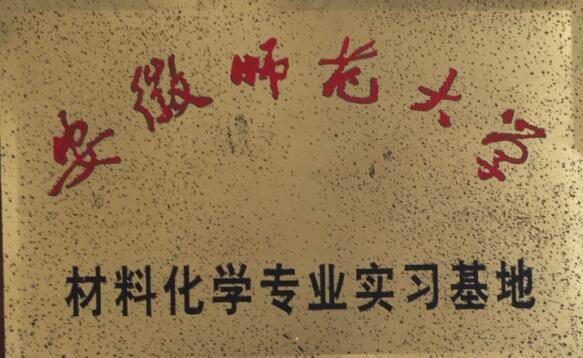 安徽师范大学
材料化学专业实习基地